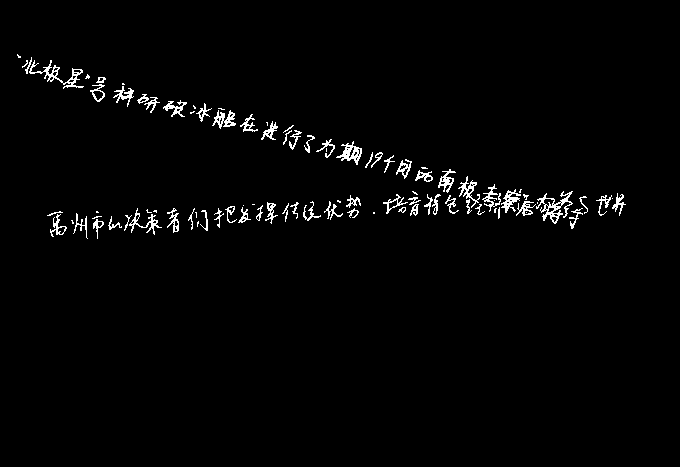 “北极星”号科研破冰船在进行了为期19个月的南极
禹州市的决策者们把发挥传统优势、培育特色经济 与世界